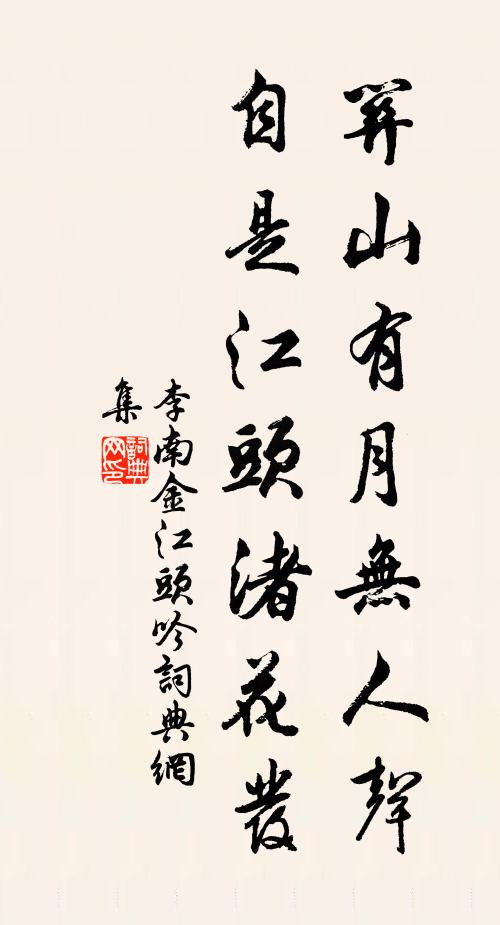 笄山有月無人聲
自是江頭渚花發
李南金江頭吟詞典網
集
詞典
网印